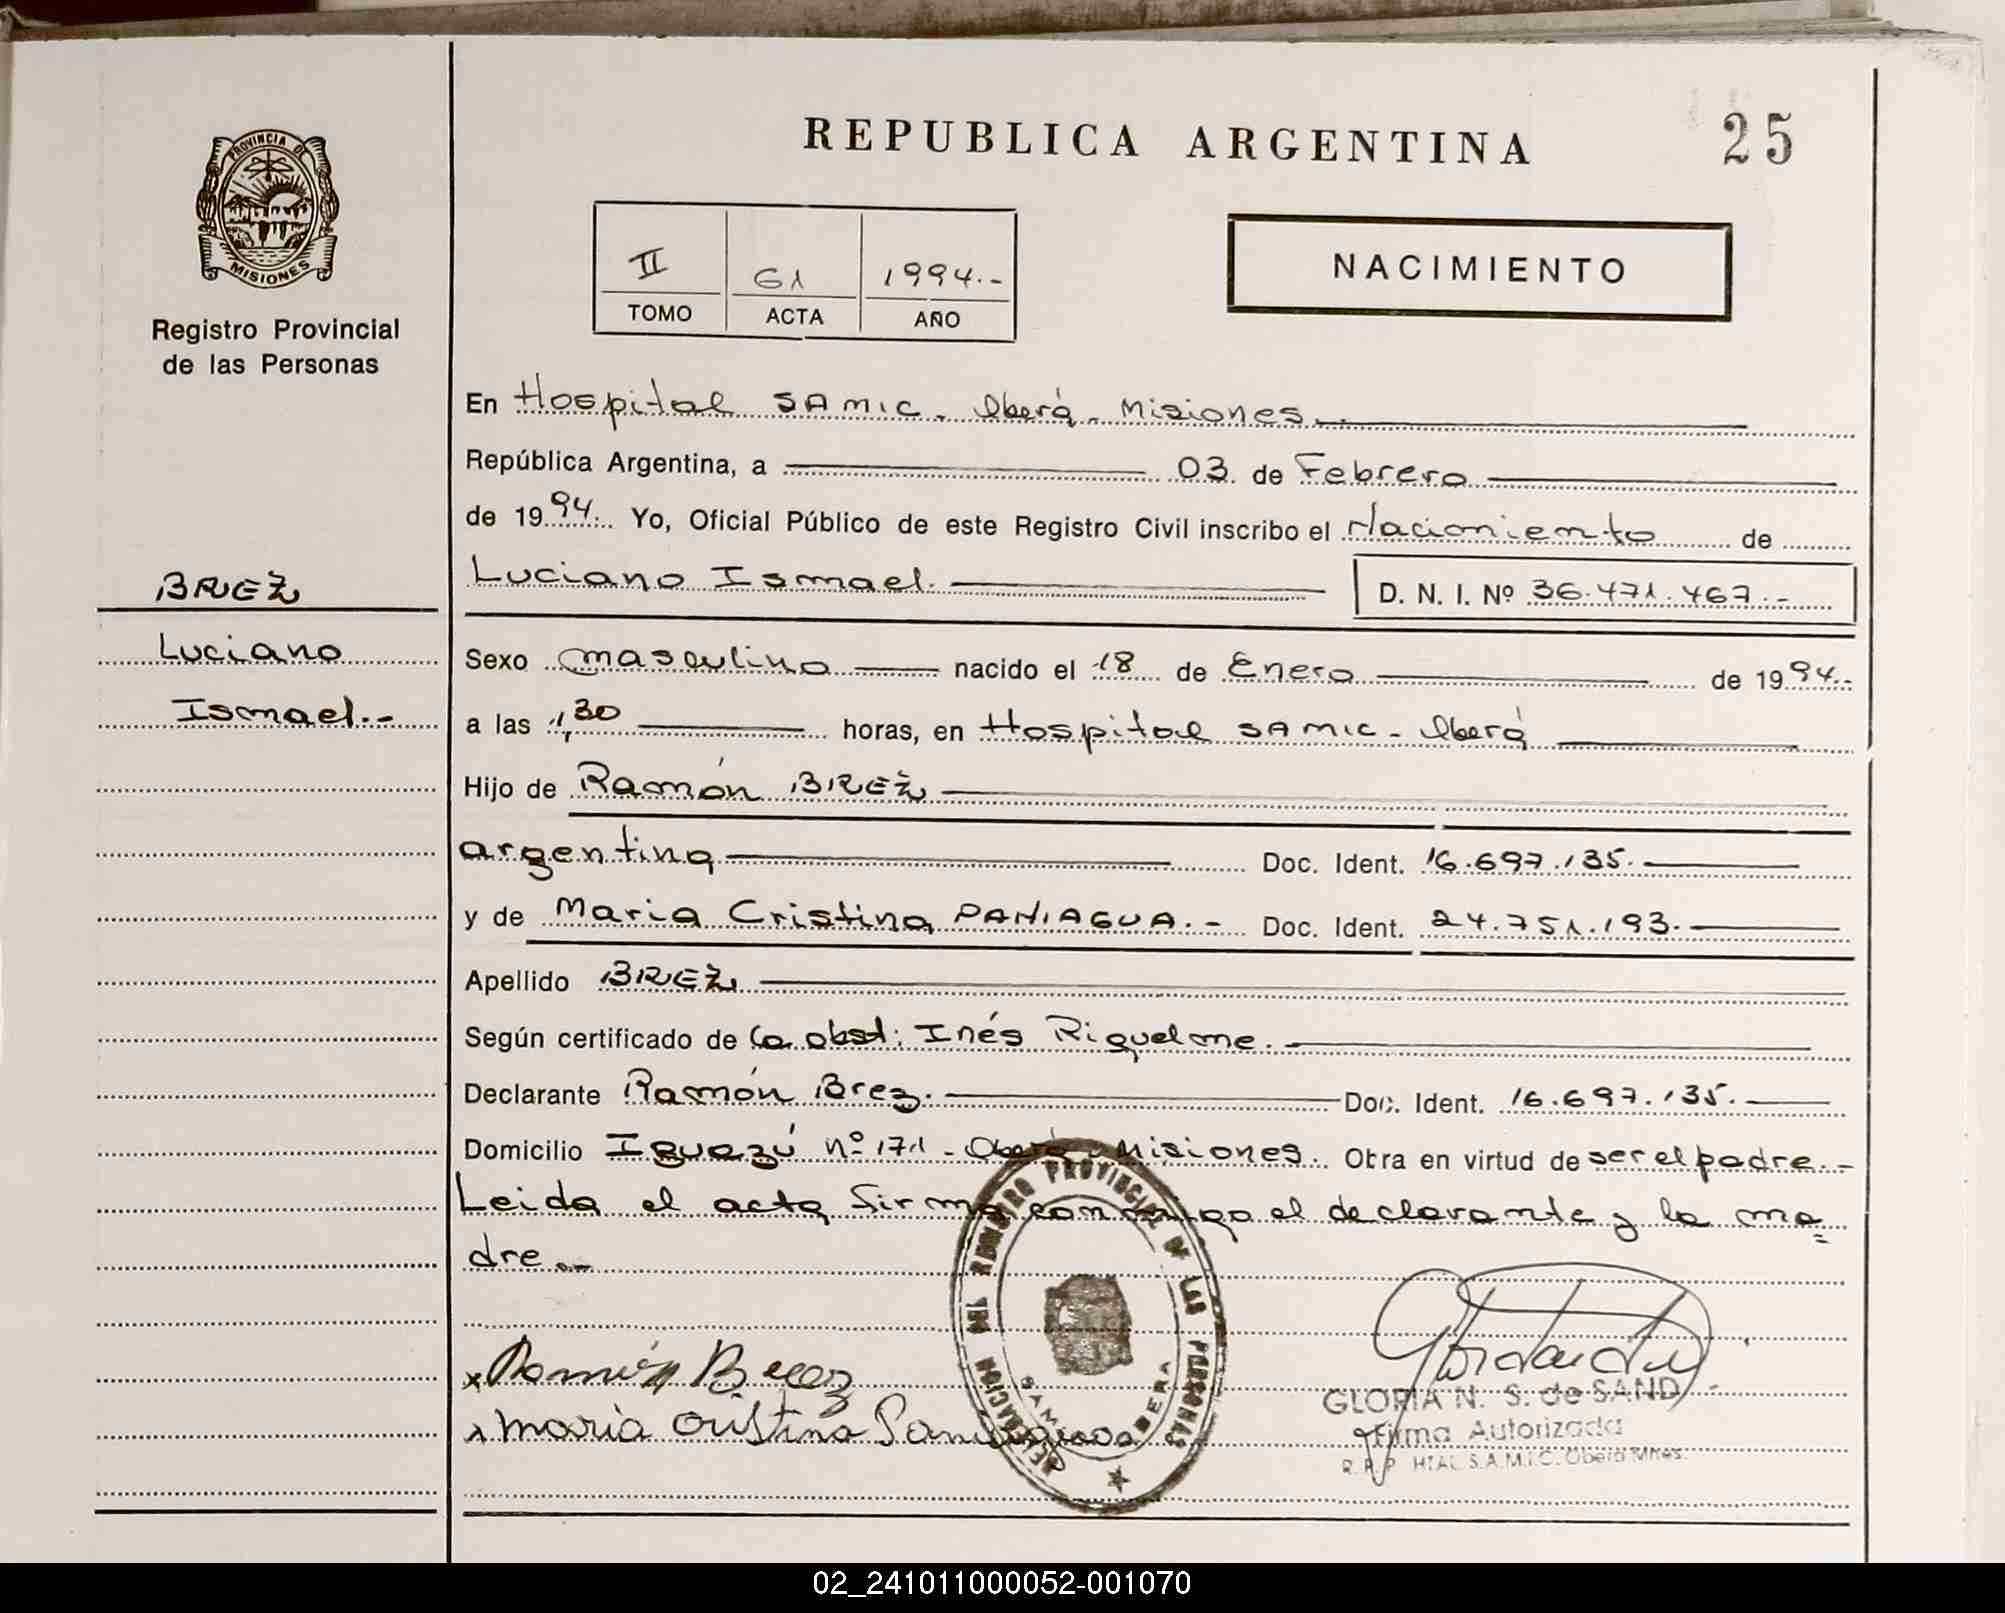 REPUBLICA ARGENTINA
25
PROVINCIA DE
MISIONES
Registro Provincial
de las Personas
II 61 1994.-
TOMO ACTA AÑO
NACIMIENTO
En Hospital SAMIC. Oberá. Misiones.
República Argentina, a 03 de Febrero
de 1994. Yo, Oficial Público de este Registro Civil inscribo el Nacimiento de
Luciano Ismael. D. N. I. Nº 36.471.467.-
BREZ
Luciano
Ismael.-
Sexo masculino nacido el 18 de Enero de 1994.-
a las 1,30 horas, en Hospital SAMIC - Oberá
Hijo de Ramón BREZ
argentina Doc. Ident. 16.697.135.
y de Maria Cristina PANIAGUA.- Doc. Ident. 24.751.193.
Apellido BREZ
Según certificado de la obst: Inés Riquelme.
Declarante Ramón Brez. Doc. Ident. 16.697.135.
Domicilio Iguazú nº 171 - Oberá, Misiones. Obra en virtud de ser el padre.-
Leida el acta firma conmigo el declarante y la ma=
dre.-
x Ramón Brez
x maria Cristina Paniagua
DELEGACION DEL REGISTRO PROVINCIAL DE LAS PERSONAS
SAMIC OBERA
GLORIA N. S. de SAND
Firma Autorizada
R. P. P. HTAL S.A.M.I.C. Oberá Mnes.
02_241011000052-001070